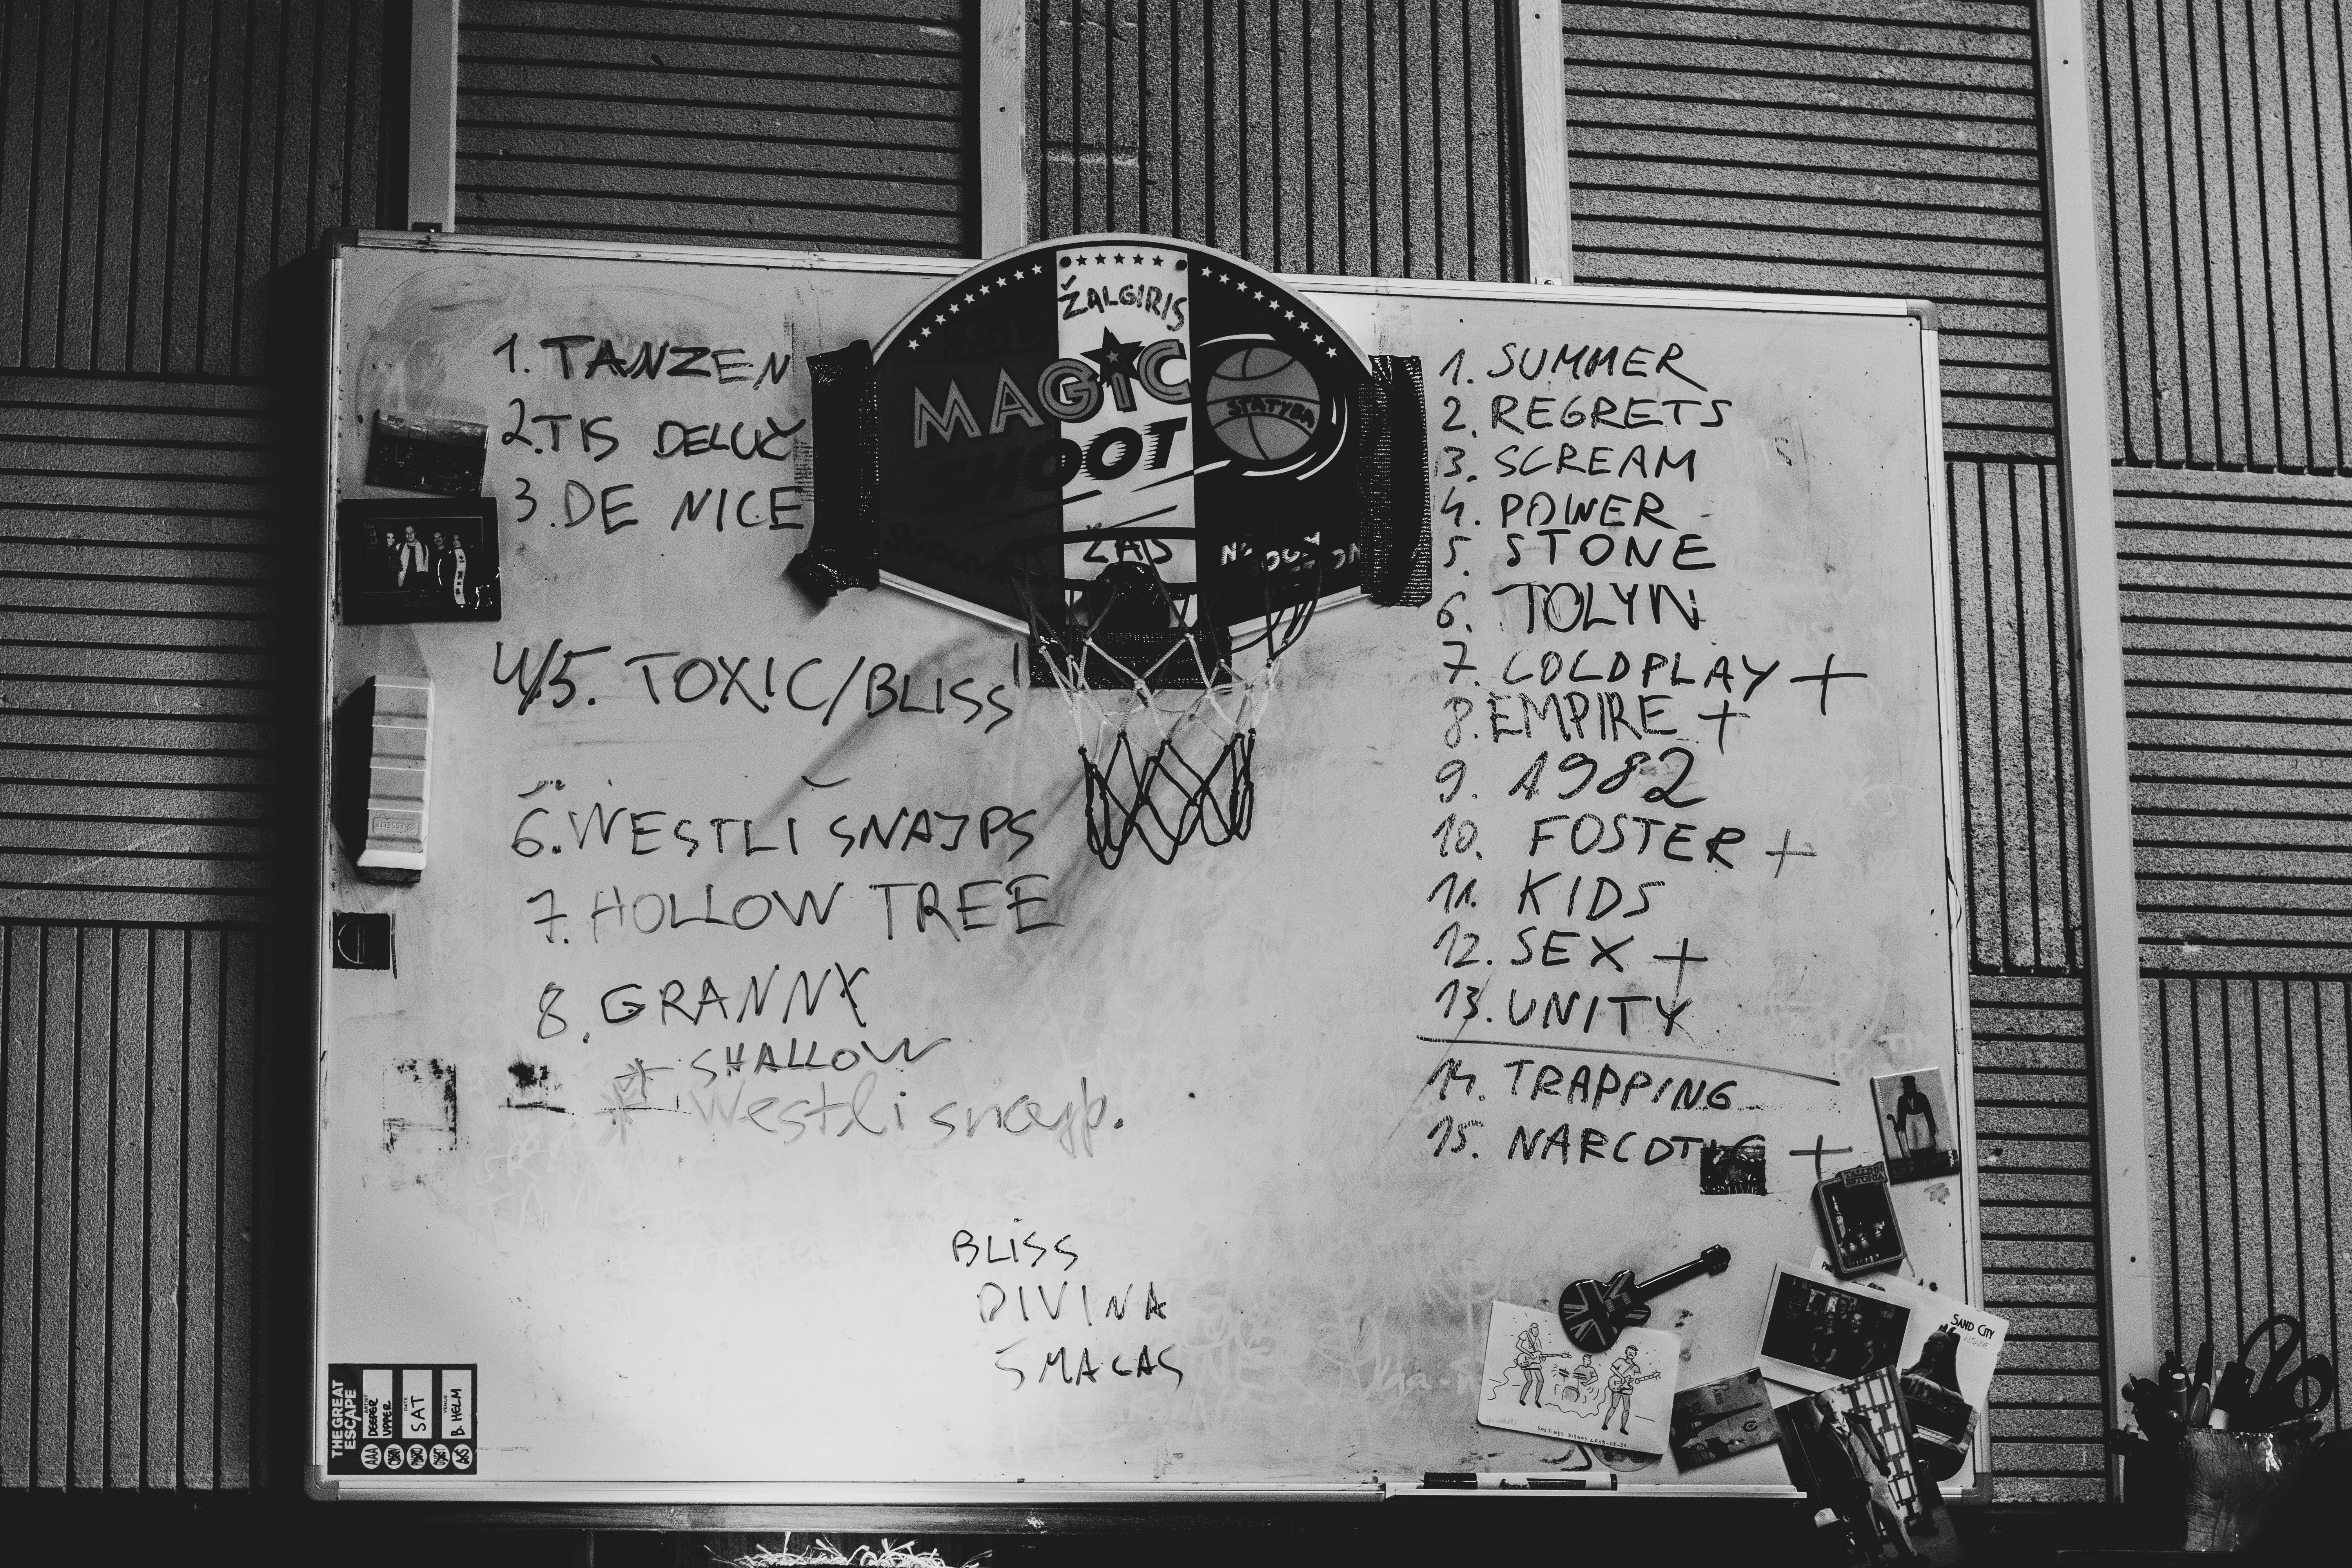 ŽALGIRIS
MAGIC
HOOT
STATYBA
ŽAIS
1. TANZEN
2. TIS DELUX
3. DE NICE
4/5. TOXIC/BLISS
6. WESTLI SNAJPS
7. HOLLOW TREE
8. GRANNY
* SHALLOW
* Westli snajp.
BLISS
DIVINA
SMACAS
1. SUMMER
2. REGRETS
3. SCREAM
4. POWER
5. STONE
6. TOLYN
7. COLDPLAY +
8. EMPIRE +
9. 1982
10. FOSTER +
11. KIDS
12. SEX +
13. UNITY
14. TRAPPING
15. NARCOTIC +
THE GREAT
ESCAPE
DEEPER
UPPER
SAT
B. HELM
SAND CITY